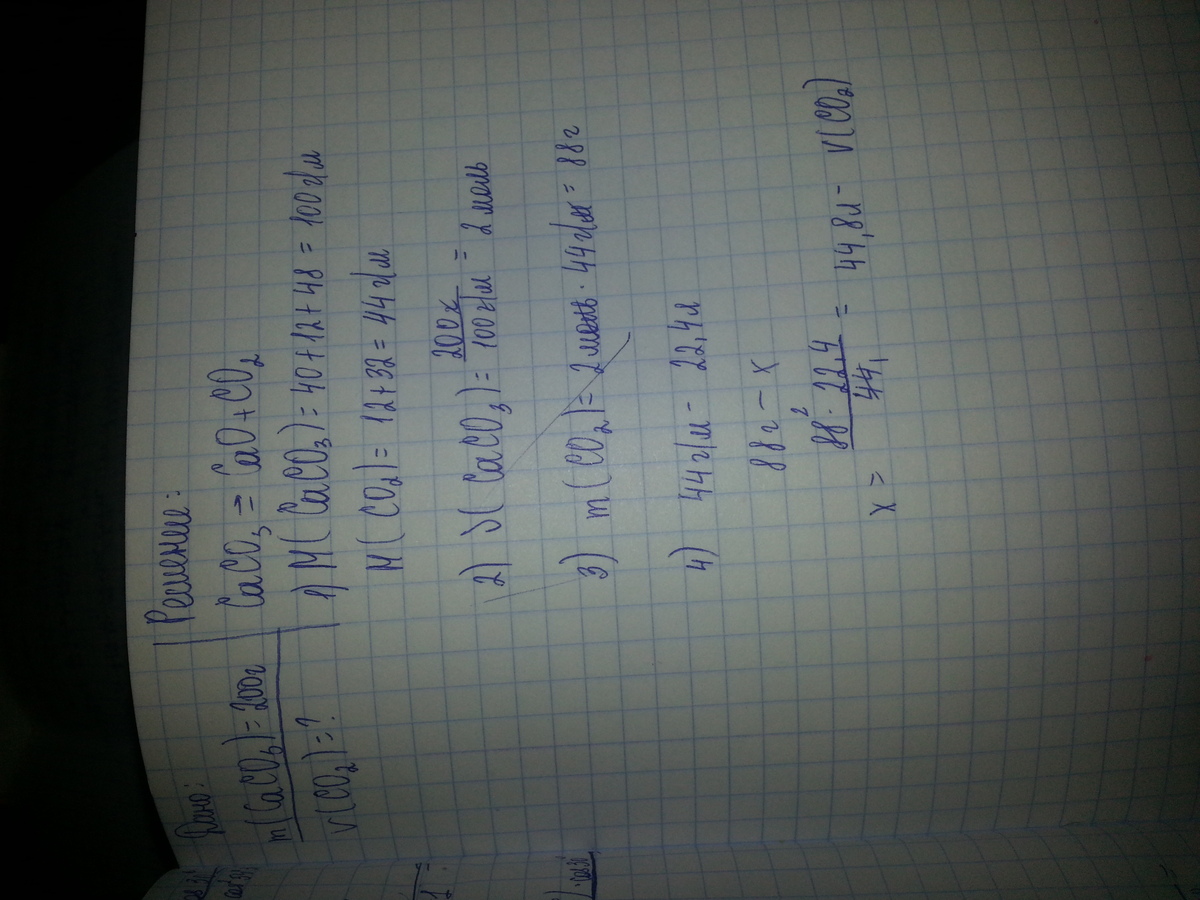 Дано:
m(CaCO₃)=200г
V(CO₂)=?
Решение:
CaCO₃ = CaO + CO₂
1) M(CaCO₃)= 40+12+48 = 100г/м
M(CO₂)= 12+32 = 44г/м
2) ν(CaCO₃)= 200г/100г/м = 2 моль
3) m(CO₂)= 2 моль · 44г/м = 88г
4) 44г/м – 22,4л
88г – x
x = 88 · 22,4/44 = 44,8л – V(CO₂)